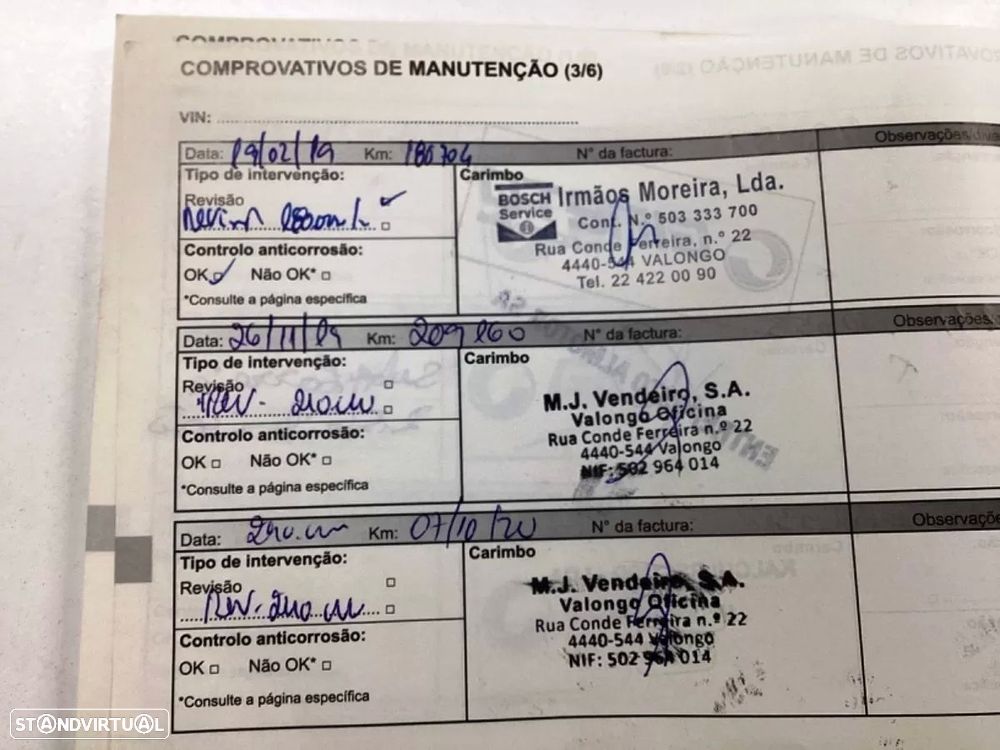 COMPROVATIVOS DE MANUTENÇÃO (3/6)
VIN:
Data: 19/02/19 Km: 180704 N° da factura: Observações
Tipo de intervenção:
Revisão
Controlo anticorrosão:
OK Não OK*
*Consulte a página específica
Carimbo
BOSCH
Service
Irmãos Moreira, Lda.
Cont. N.º 503 333 700
Rua Conde Ferreira, n.º 22
4440-544 VALONGO
Tel. 22 422 00 90
Data: 26/11/19 Km: 209 160 N° da factura: Observações
Tipo de intervenção:
Revisão
Rev.
Controlo anticorrosão:
OK Não OK*
*Consulte a página específica
Carimbo
M.J. Vendeiro, S.A.
Valongo Oficina
Rua Conde Ferreira n.º 22
4440-544 Valongo
NIF: 502 964 014
Data: Km: 07/10/20 N° da factura: Observações
Tipo de intervenção:
Revisão
Rev.
Controlo anticorrosão:
OK Não OK*
*Consulte a página específica
Carimbo
M.J. Vendeiro, S.A.
Valongo Oficina
Rua Conde Ferreira n.º 22
4440-544 Valongo
NIF: 502 964 014
STANDVIRTUAL